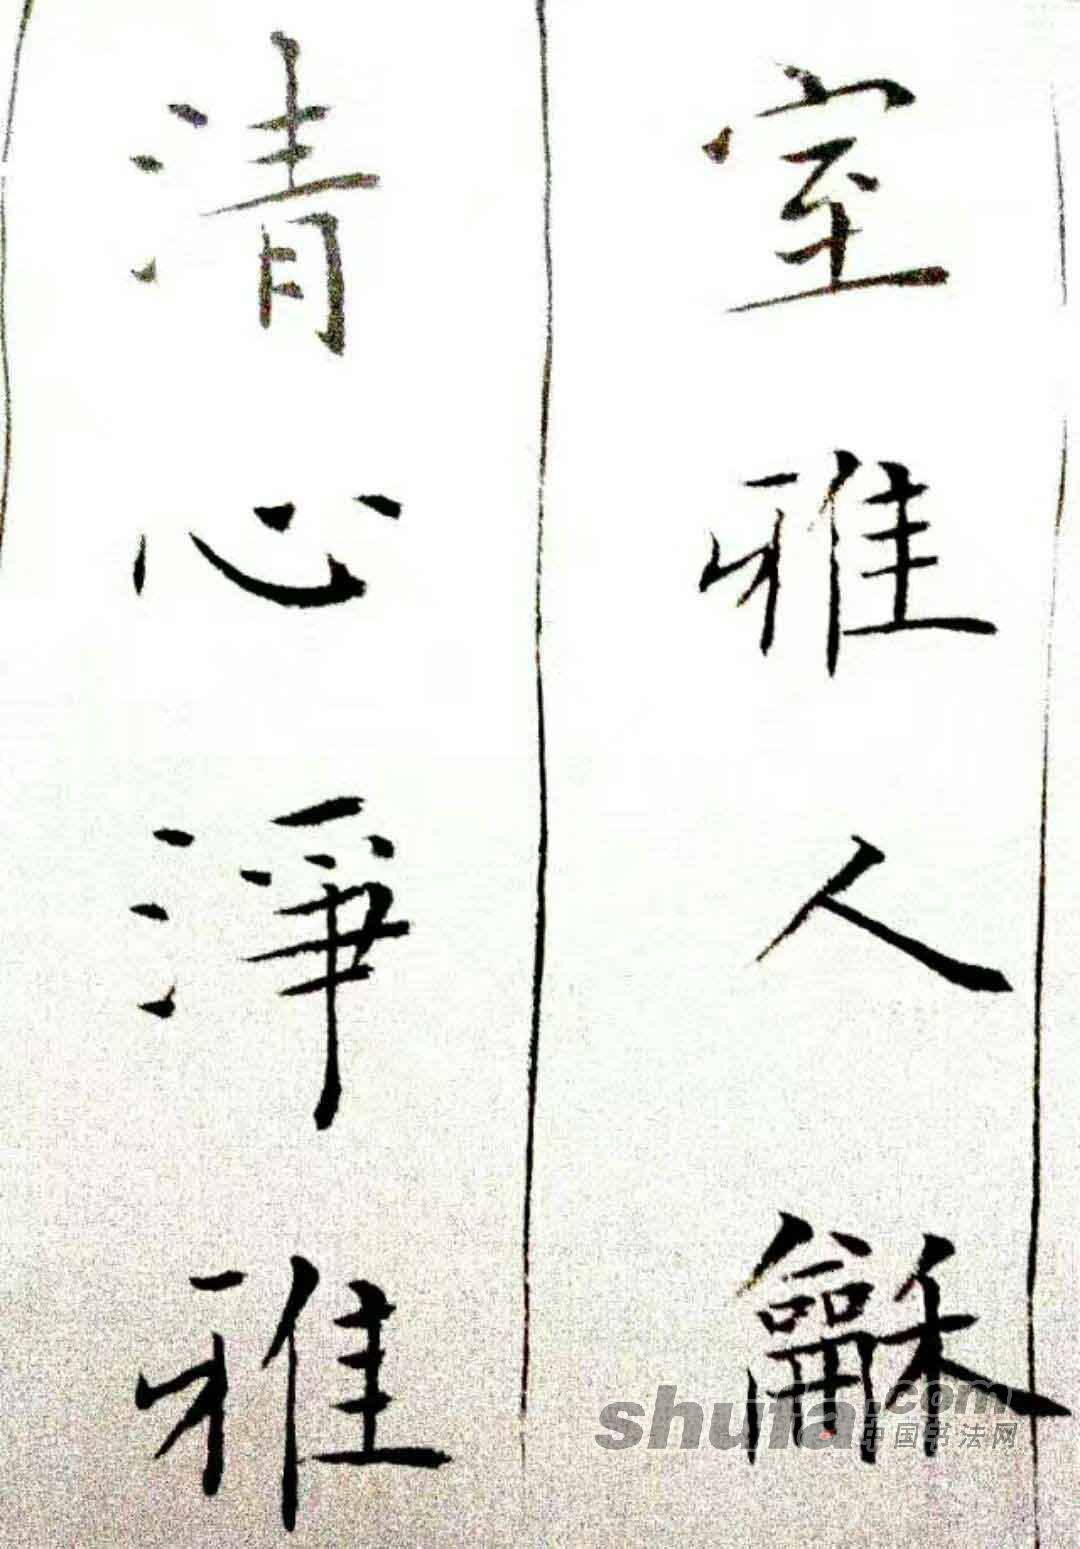 室雅人龢
清心淨雅
shufa.com
中国书法网